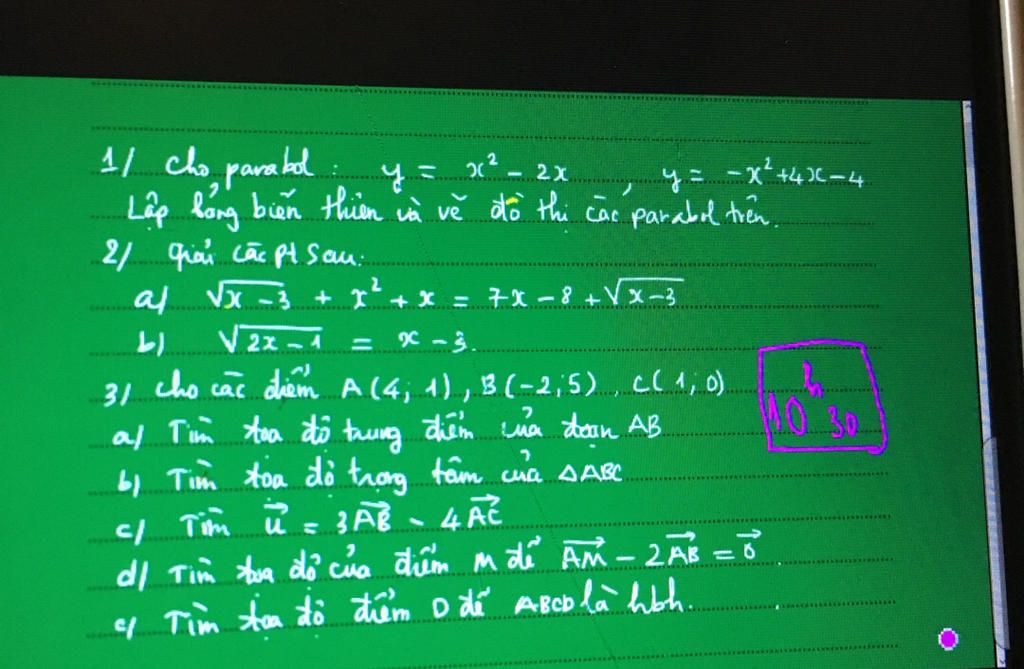 1/ Cho parabol : y = x² - 2x , y = -x²+4x-4
Lập bảng biến thiên và vẽ đồ thị các parabol trên.
2/ giải các pt sau:
a/ √(x-3) + x² + x = 7x - 8 + √(x-3)
b) √(2x-1) = x - 3.
3/ cho các điểm A(4; 1), B(-2;5), C(1;0)
a/ Tìm tọa độ trung điểm của đoạn AB
b/ Tìm tọa độ trọng tâm của ΔABC
c/ Tìm u⃗ = 3AB⃗ - 4AC⃗
d/ Tìm tọa độ của điểm M để AM⃗ - 2AB⃗ = 0⃗
e/ Tìm tọa độ điểm D để ABCD là hbh.
10h30